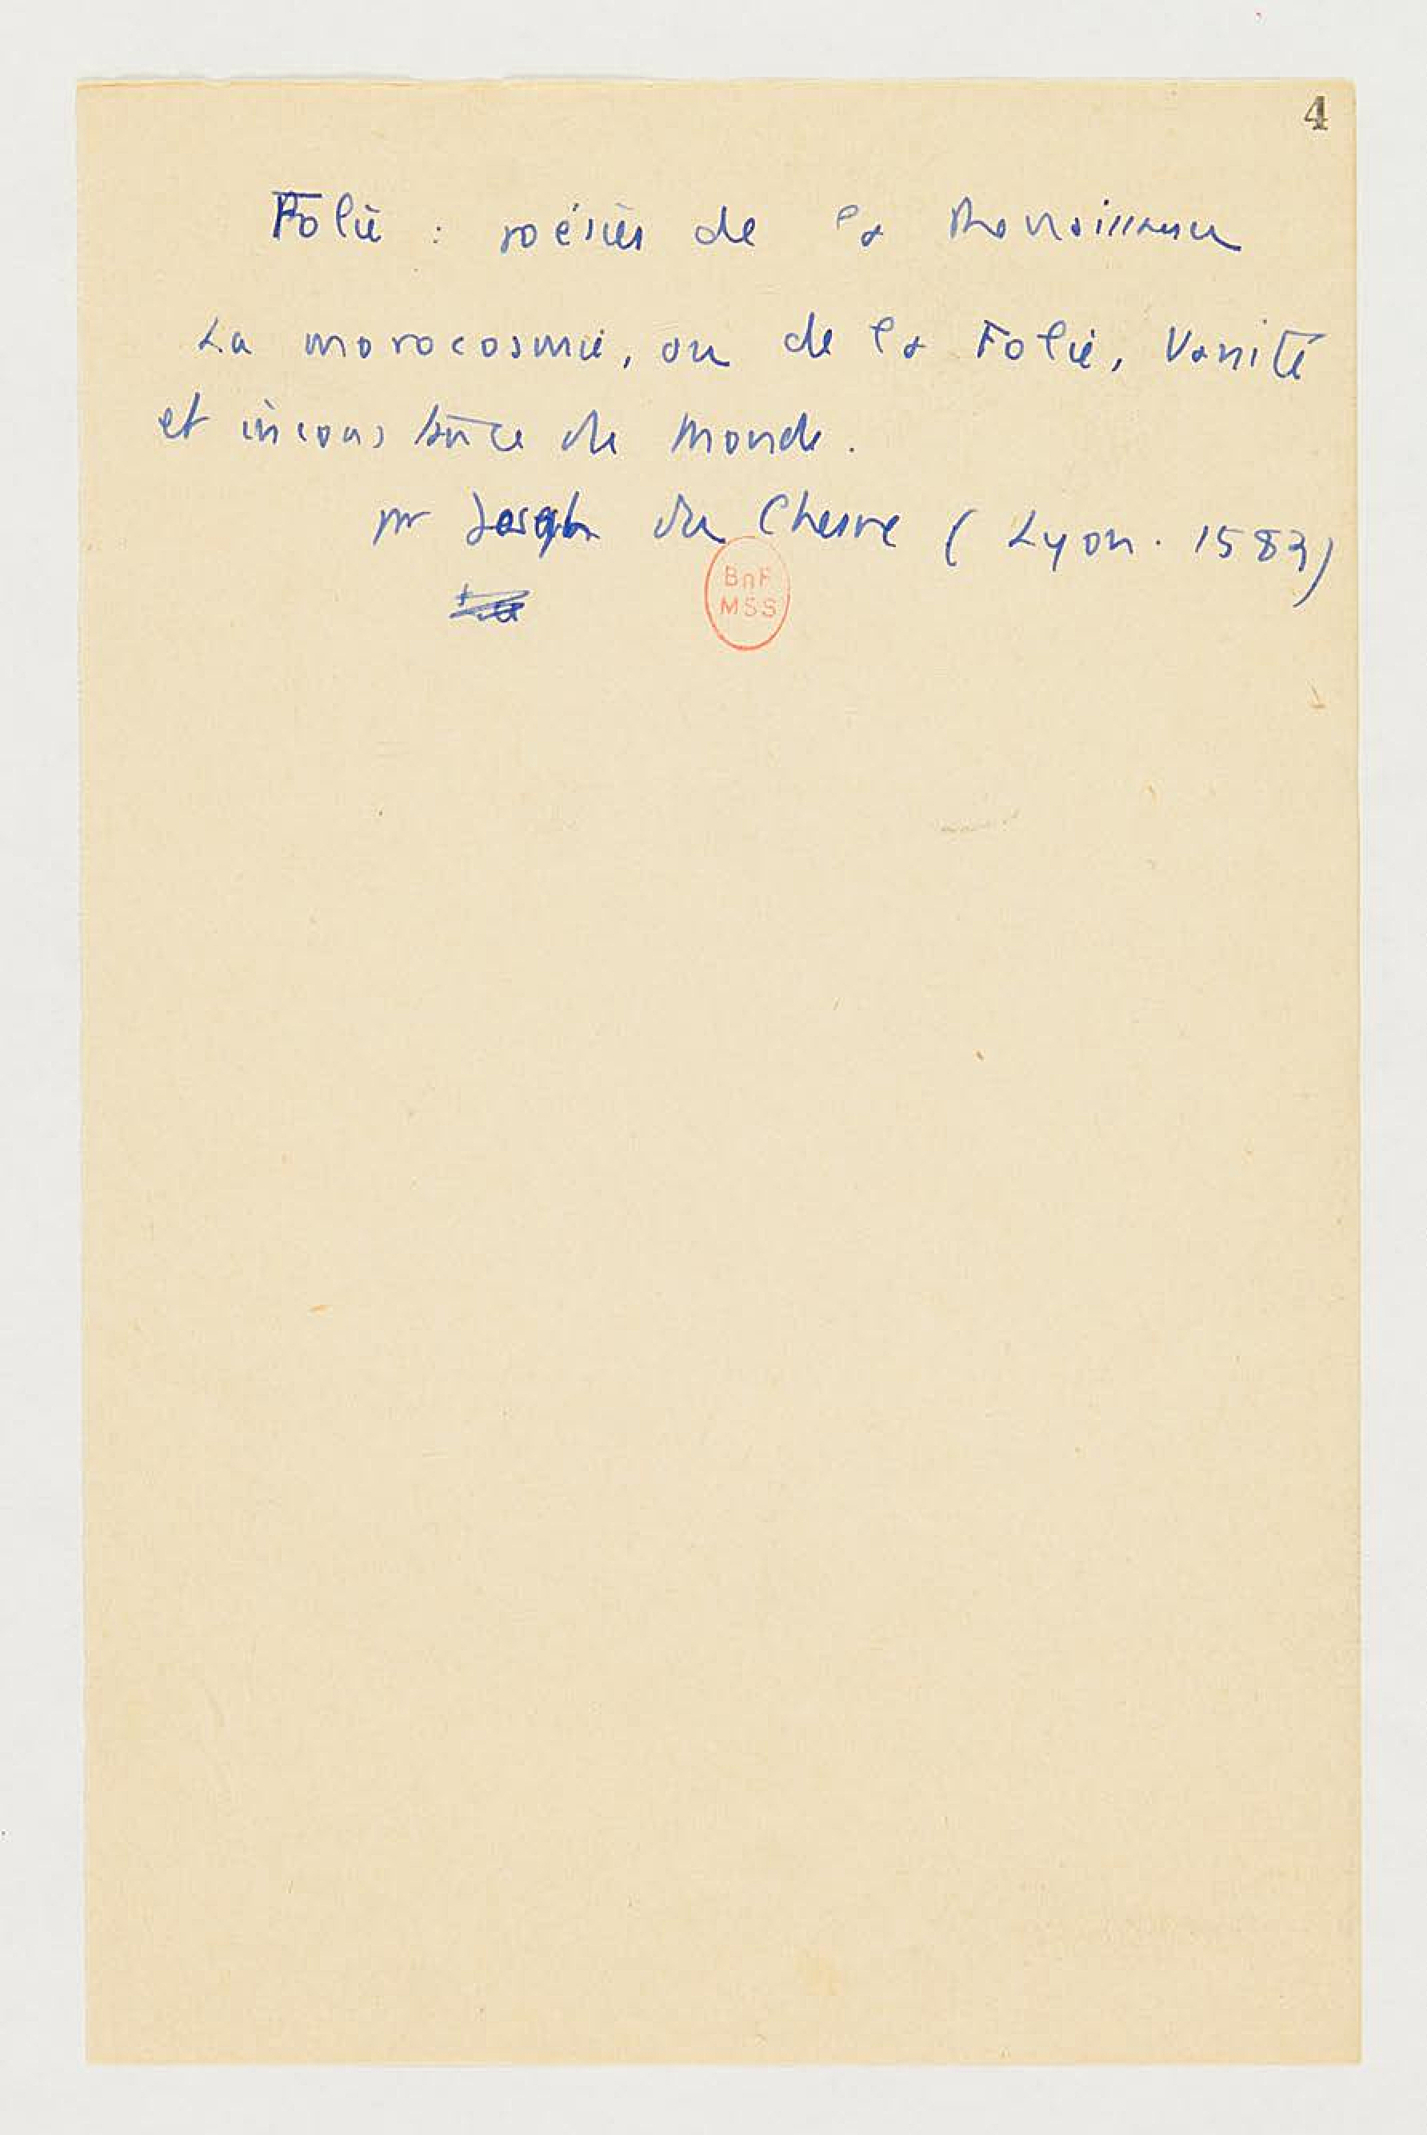 4
Folie : poésies de la Renaissance
La morocosmie, ou de la Folie, Vanité
et inconstance du Monde.
par Joseph du Chesne (Lyon. 1583)
BnF
MSS